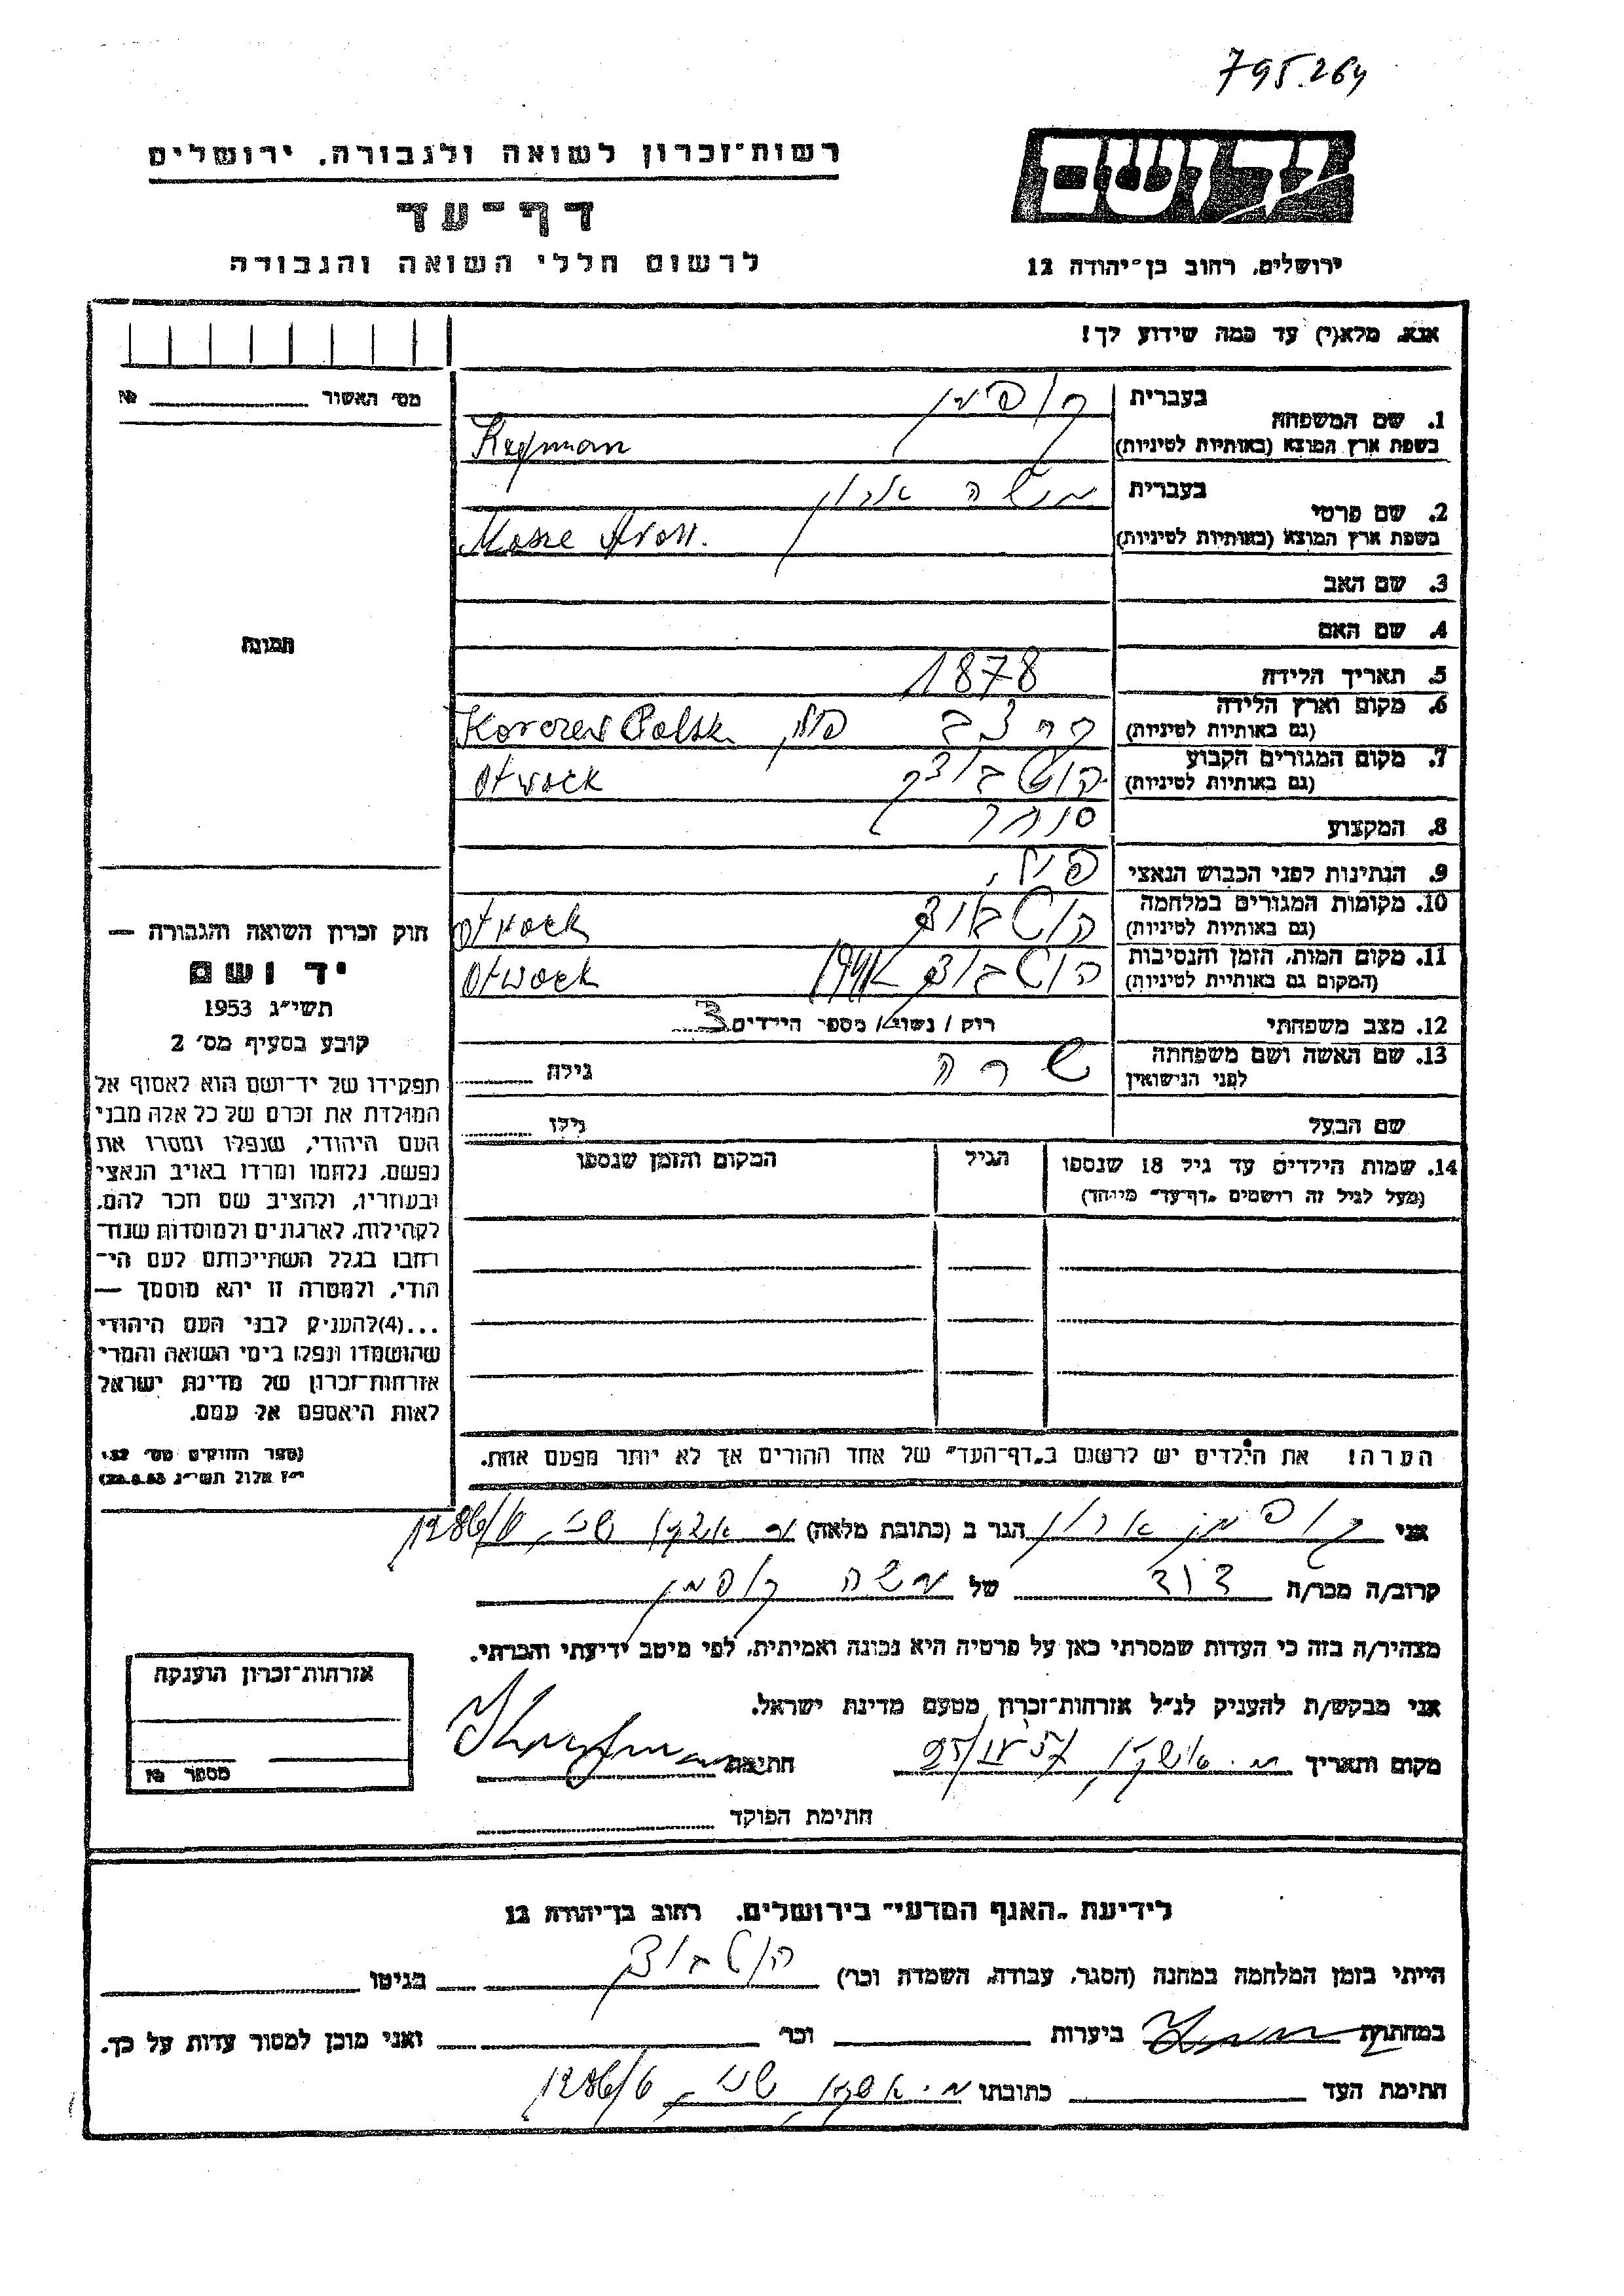 795.264
רשות-זכרון לשואה ולגבורה, ירושלים
דף-עד
לרשום חללי השואה והגבורה
ידושם
ירושלים, רחוב בן-יהודה 12
אנא, מלא(י) עד כמה שידוע לך!
מס׳ האשור № 
1. שם המשפחה
בעברית קופמן
בשפת ארץ המוצא (באותיות לטיניות)
2. שם פרטי
בעברית משה ארון
בשפת ארץ המוצא (באותיות לטיניות) Aron.
3. שם האב
4. שם האם
5. תאריך הלידה 1878
6. מקום וארץ הלידה
(גם באותיות לטיניות) פולין
7. מקום המגורים הקבוע
(גם באותיות לטיניות) Otwock
8. המקצוע סוחר
9. הנתינות לפני הכבוש הנאצי
10. מקומות המגורים במלחמה
(גם באותיות לטיניות) Otwock
11. מקום המות, הזמן והנסיבות
(המקום גם באותיות לטיניות) Otwock
12. מצב משפחתי רוק / נשוי / מספר הילדים 3
13. שם האשה ושם משפחתה
לפני הנישואין שרה גילה
שם הבעל גילו
14. שמות הילדים עד גיל 18 שנספו
(מעל לגיל זה רושמים „דף-עד" מיוחד)
הגיל
המקום והזמן שנספו
הערה! את הילדים יש לרשום ב„דף-העד" של אחד ההורים אך לא יותר מפעם אחת.
תמונה
חוק זכרון השואה והגבורה —
יד ושם
תשי״ג 1953
קובע בסעיף מס׳ 2
תפקידו של יד-ושם הוא לאסוף אל
המולדת את זכרם של כל אלה מבני
העם היהודי, שנפלו ומסרו את
נפשם, נלחמו ומרדו באויב הנאצי
ובעוזריו, ולהציב שם וזכר להם,
לקהילות, לארגונים ולמוסדות שנח-
רבו בגלל השתייכותם לעם הי-
הודי, ולמטרה זו יהא מוסמך —
...(4)להעניק לבני העם היהודי
שהושמדו ונפלו בימי השואה והמרי
אזרחות-זכרון של מדינת ישראל
לאות היאספם אל עמם.
(ספר החוקים מס׳ 132,
י״ז אלול תשי״ג 28.8.53)
אני קופמן ארון הגר ב (כתובת מלאה)
קרוב/ה מכר/ה של משה קופמן
מצהיר/ה בזה כי העדות שמסרתי כאן על פרטיה היא נכונה ואמיתית, לפי מיטב ידיעתי והכרתי.
אני מבקש/ת להעניק לנ״ל אזרחות-זכרון מטעם מדינת ישראל.
מקום ותאריך חתימה
חתימת הפוקד
אזרחות-זכרון הוענקה
מספר №
לידיעת „האגף המדעי" בירושלים, רחוב בן-יהודה 12
הייתי בזמן המלחמה במחנה (הסגר, עבודה, השמדה וכר׳) בגיטו
במחתרת ביערות וכר׳ ואני מוכן למסור עדות על כך.
חתימת העד כתובתו